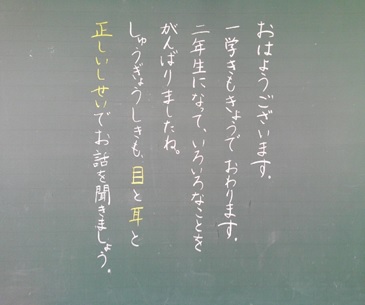 おはようございます。
一学きもきょうでおわります。
二年生になって、いろいろなことを
がんばりましたね。
しゅうぎょうしきも、目と耳と
正しいしせいでお話を聞きましょう。